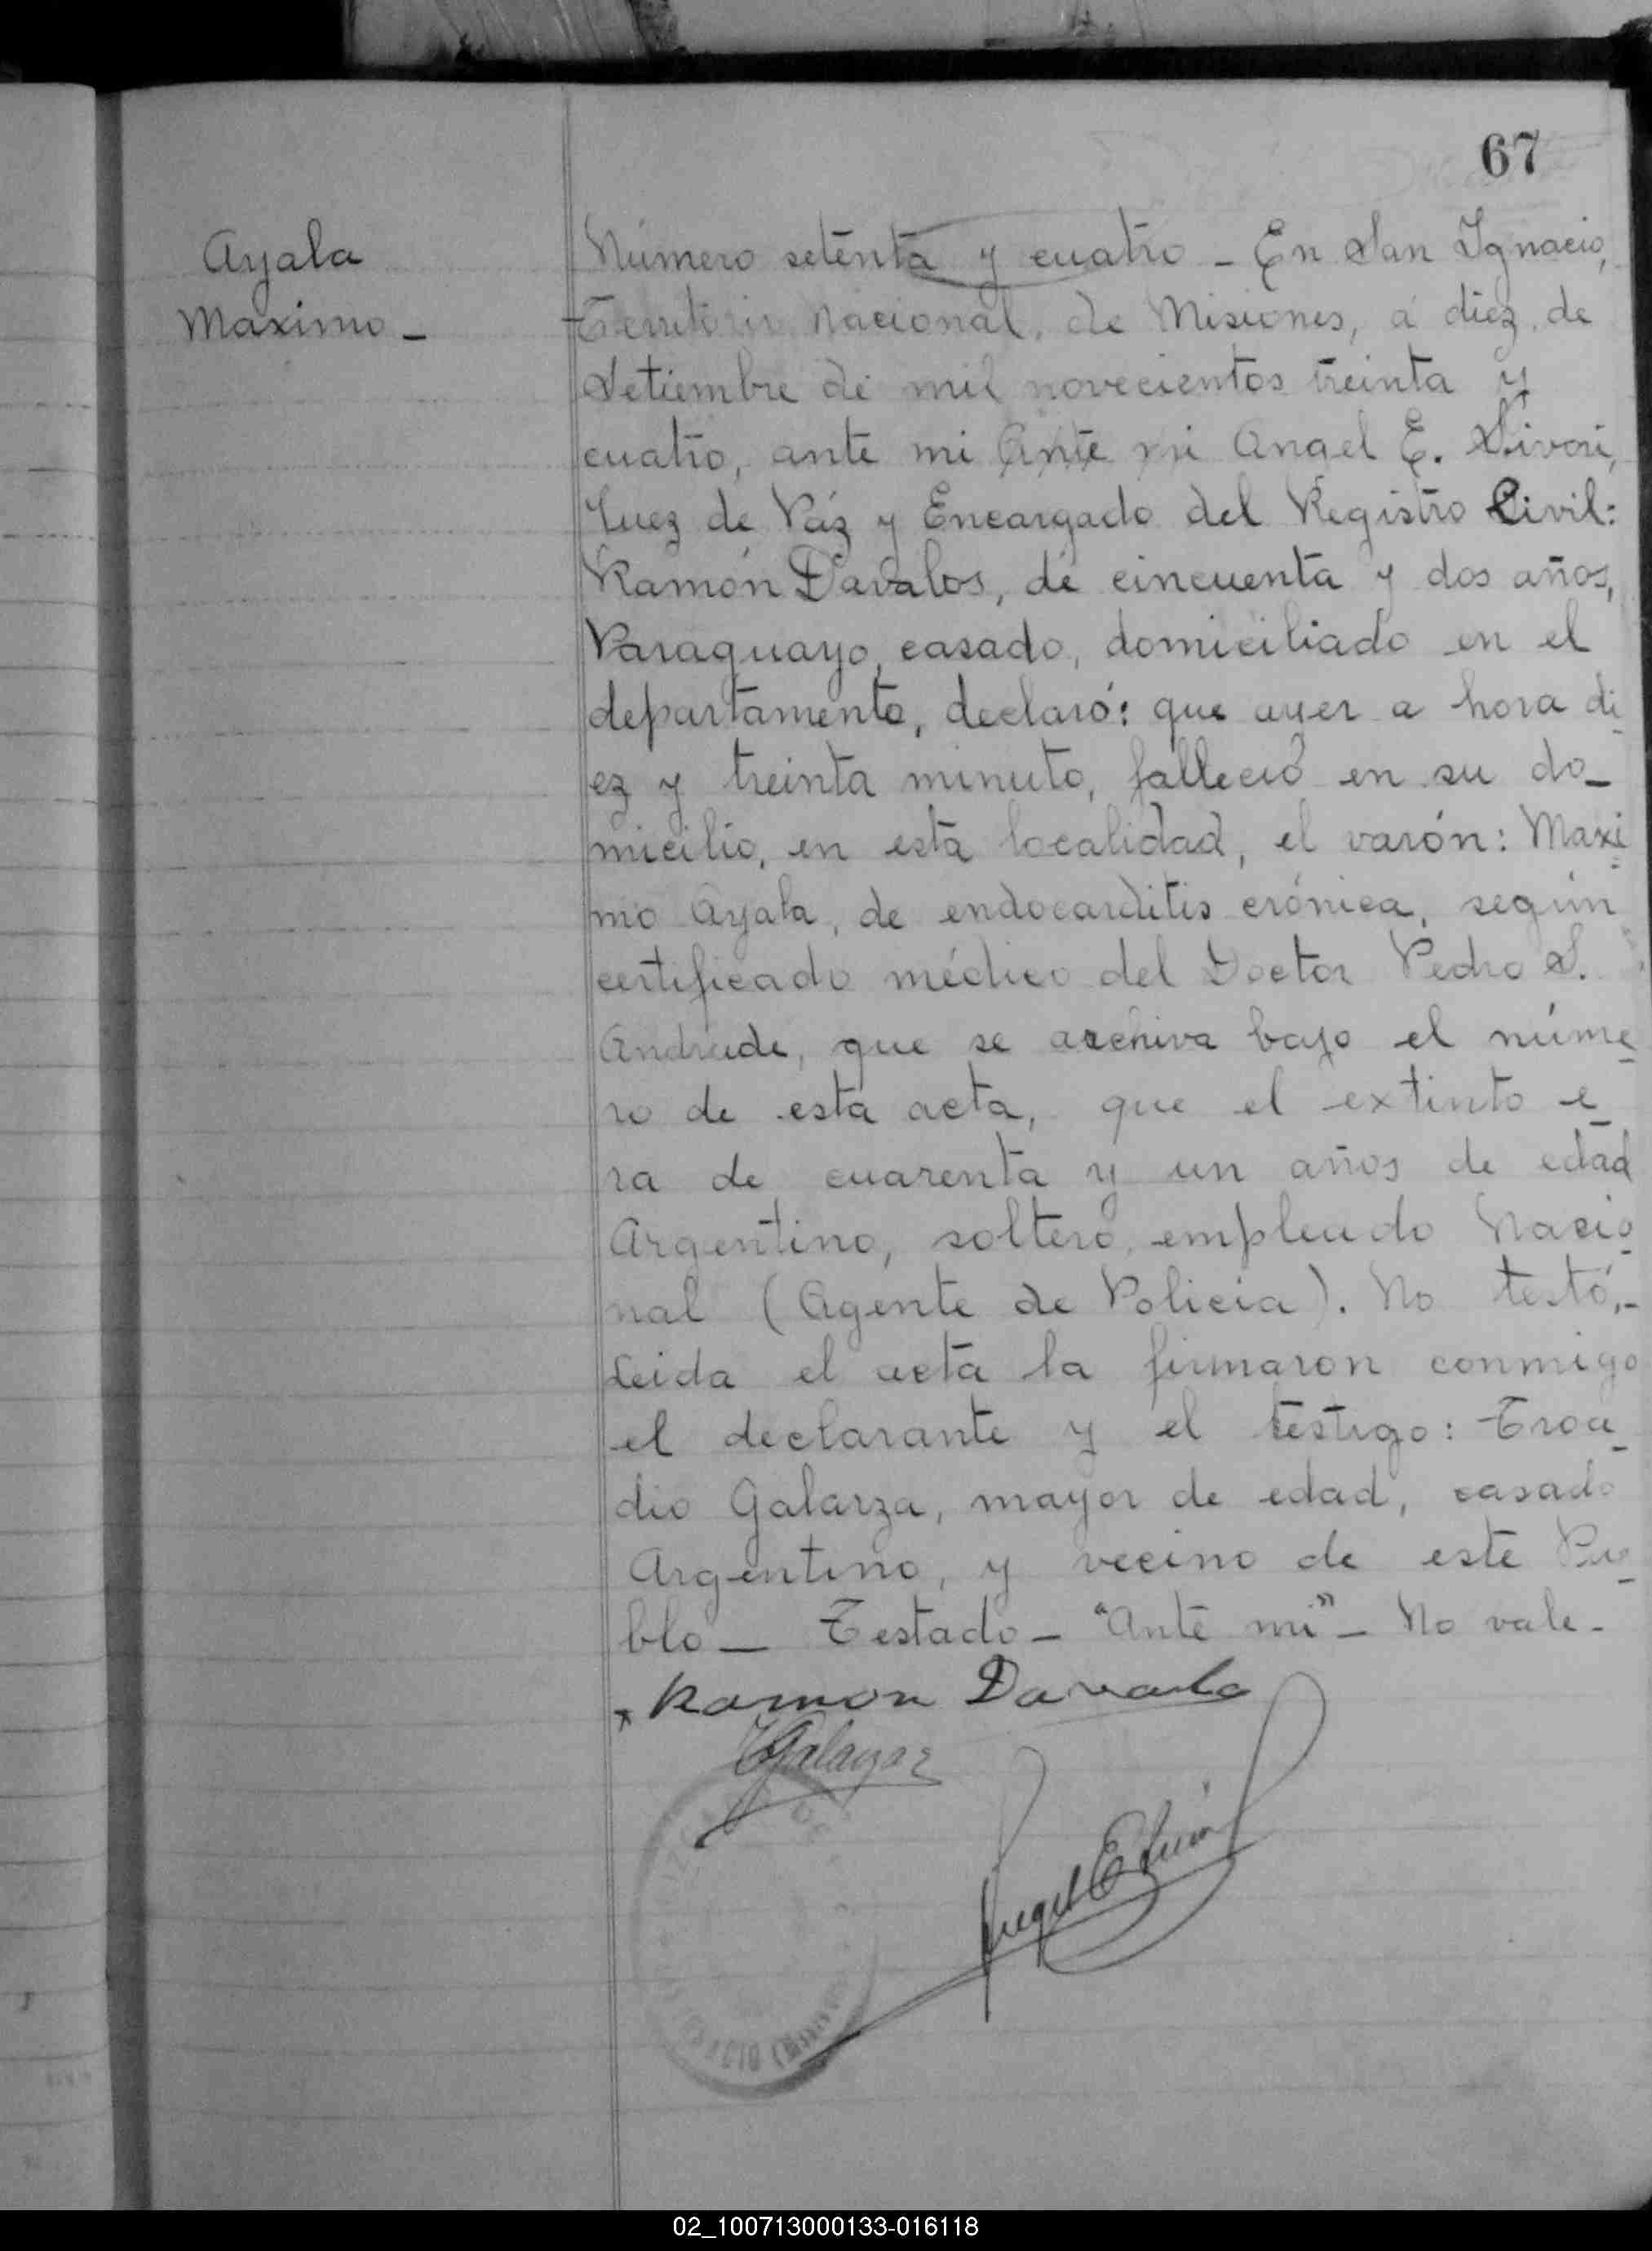 67
Ayala
Maximo _
Número setenta y cuatro - En San Ignacio,
Territorio Nacional, de Misiones, á diez de
Setiembre de mil novecientos treinta y
cuatro, ante mi Ante mi Angel E. Sivori,
Juez de Páz y Encargado del Registro Civil:
Ramón Davalos, de cincuenta y dos años,
Paraguayo, casado, domiciliado en el
departamento, declaró: que ayer a hora di
ez y treinta minuto, falleció en su do_
micilio, en esta localidad, el varón: Maxi
mo Ayala, de endocarditis crónica, según
certificado médico del Doctor Pedro S.
Andrade, que se archiva bajo el núme
ro de esta acta, que el extinto e
ra de cuarenta y un años de edad
Argentino, soltero, empleado Nacio
nal (Agente de Policia). No testó,-
Leida el acta la firmaron conmigo
el declarante y el testigo: Troa
dio Galarza, mayor de edad, casado
Argentino, y vecino de este Pue
blo _ Testado - "Ante mi" - No vale -
Ramon Davalo
TGalarza
Angel E Sivori
02_100713000133-016118